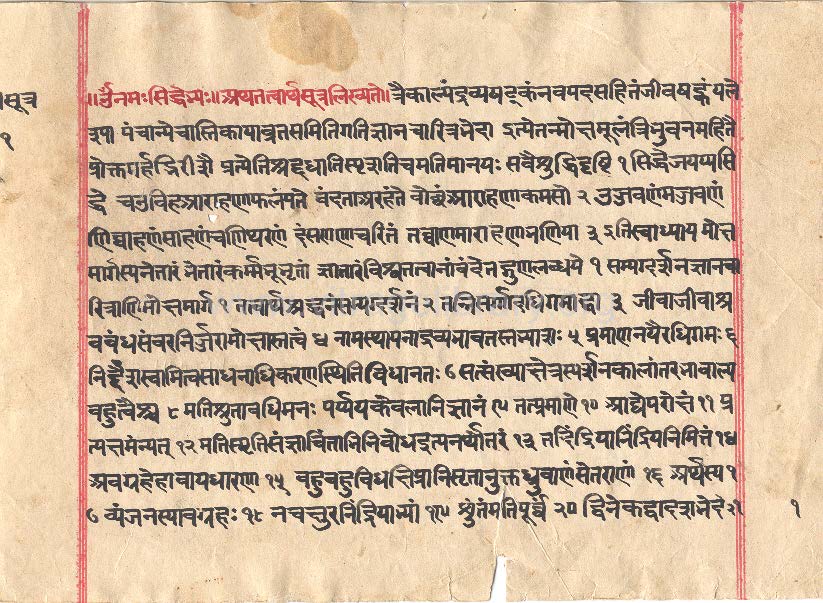 सूत्र
१
॥र्उनमःसिद्धेभ्यः॥अथतत्वार्थसूत्रलिख्यते॥त्रैकाल्यंद्रव्यषट्कंनवपदसहितंजीवषट्कायले
श्या पंचान्येचास्तिकायाव्रतसमितिगतिज्ञानचारित्रभेदा इत्येतन्मोक्षमूलंत्रिभुवनमहितै
प्रोक्तमर्हद्भिरीशै प्रत्येतिश्रद्धधातिस्पृशतिचमतिमानयः सवैशुद्धिदृष्टि १ सिद्धेजयप्पसि
द्धे चउविहआराहणाफलंपते वंदताअरहंते वोछंआराहणाकमसो २ उज्जवणंमजवणं
णिव्वाहणंसाहणंचणिथरणं दंसणणाणचरितं तवाणमाराहणाभणिया ३ इतिस्वाध्याय मोक्ष
मार्गस्यनेतारं भेतारंकर्म्मभूभृतां ज्ञातारंविश्वतत्वानांवंदेतद्गुणलब्धये १ सम्यग्दर्शनज्ञानचा
रित्राणिमोक्षमार्ग १ तत्वार्थश्रद्धानंसम्यग्दर्शनं २ तन्निसर्गादधिगमाद्वा ३ जीवाजीवाश्र
वबंधसंवरनिर्ज्जरामोक्षास्तत्वं ४ नामस्थापनाद्रव्यभावतस्तन्न्यासः ५ प्रमाणनयैरधिगमः ६
निर्द्देशस्वामित्वसाधनाधिकरणस्थितिविधानतः ७ सत्संख्याक्षेत्रस्पर्शनकालांतरभावाल्प
बहुत्वैश्च ८ मतिश्रुतावधिमनः पर्य्ययकेवलानिज्ञानं ९ तत्प्रमाणे १० आद्येपरोक्षं ११ प्र
त्यक्षमन्यत् १२ मतिस्मृतिसंज्ञाचिंतानिनिबोधइत्यनर्थांतरं १३ तदिंद्रियानिंद्रियनिमित्तं १४
अवग्रहेहावायधारणा १५ बहुबहुविधक्षिप्रानिसृतानुक्तध्रुवाणंसेतराणां १६ अर्थस्य १
७ व्यंजनस्यावग्रहः १८ नचक्षुरनिंद्रियाभ्यां १९ श्रुतंमतिपूर्व्वं २० द्विनेकद्वादशभेदं २१
१